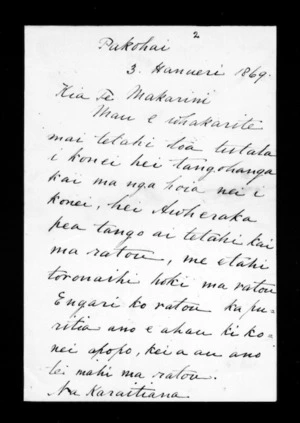 2
Pukohai
3. Hanueri 1869.
Kia Te Makarini
Mau e whakarite
mai tetahi toa tutata
i konei hei tangohanga
kai ma nga hoia nei i
konei, hei Awheraka
pea tango ai tetahi kai
ma ratou, me etahi
toronaihi hoki ma ratou
Engari ko ratou ka pu-
ritia ano e ahau ki ko-
nei apopo, kei a au ano
te mahi ma ratou.
Na Karaitiana